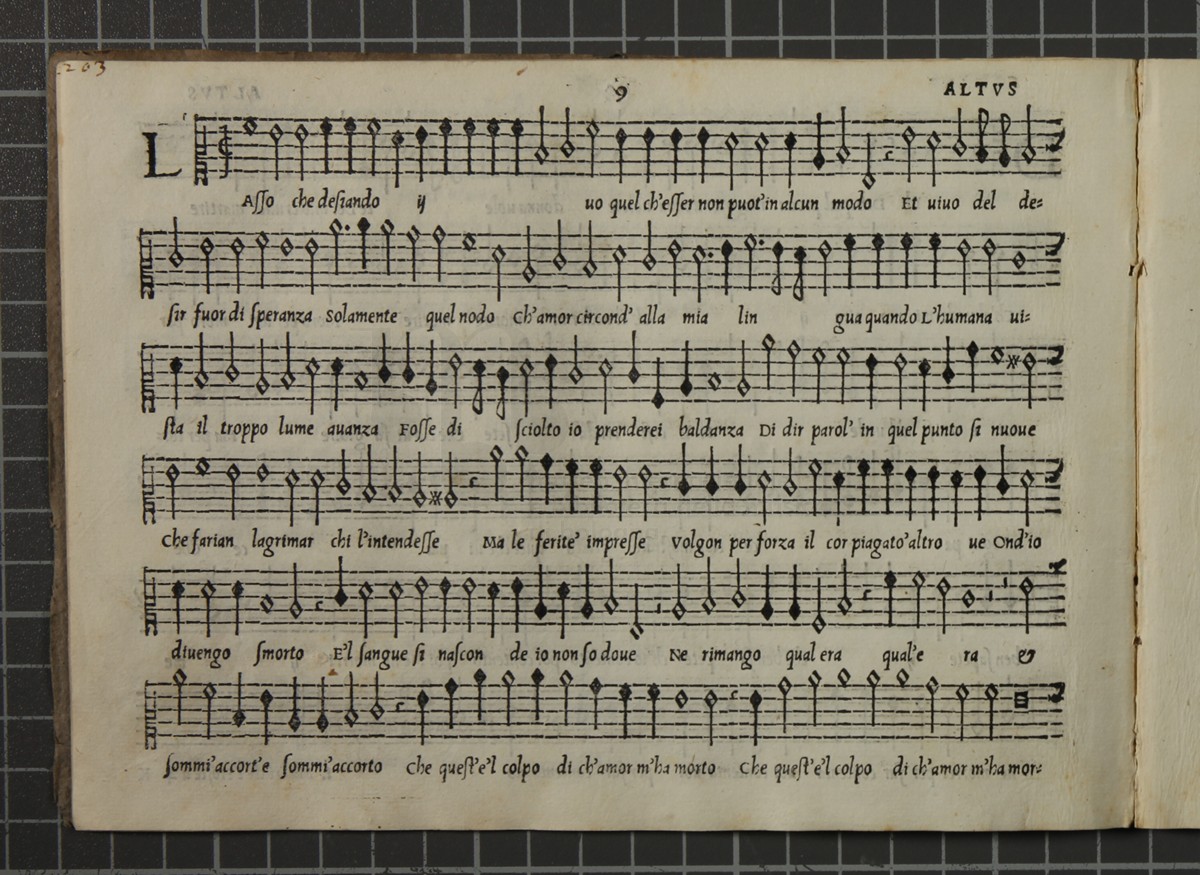 203
9 ALTVS
L
Asso che desiando ij uo quel ch'esser non puot'in alcun modo Et uiuo del de=
sir fuor di speranza Solamente quel nodo Ch'amor circond' alla mia lin gua quando L'humana ui=
sta il troppo lume auanza Fosse di sciolto io prenderei baldanza Di dir parol' in quel punto si nuoue
Che farian lagrimar chi l'intendesse Ma le ferite' impresse Volgon per forza il cor piagato'altro ue Ond'io
diuengo smorto E'l sangue si nascon de io non so doue Ne rimango qual era qual'e ra &
sommi'accort'e sommi'accorto Che quest'e'l colpo di ch'amor m'ha morto Che quest'e'l colpo di ch'amor m'ha mor=